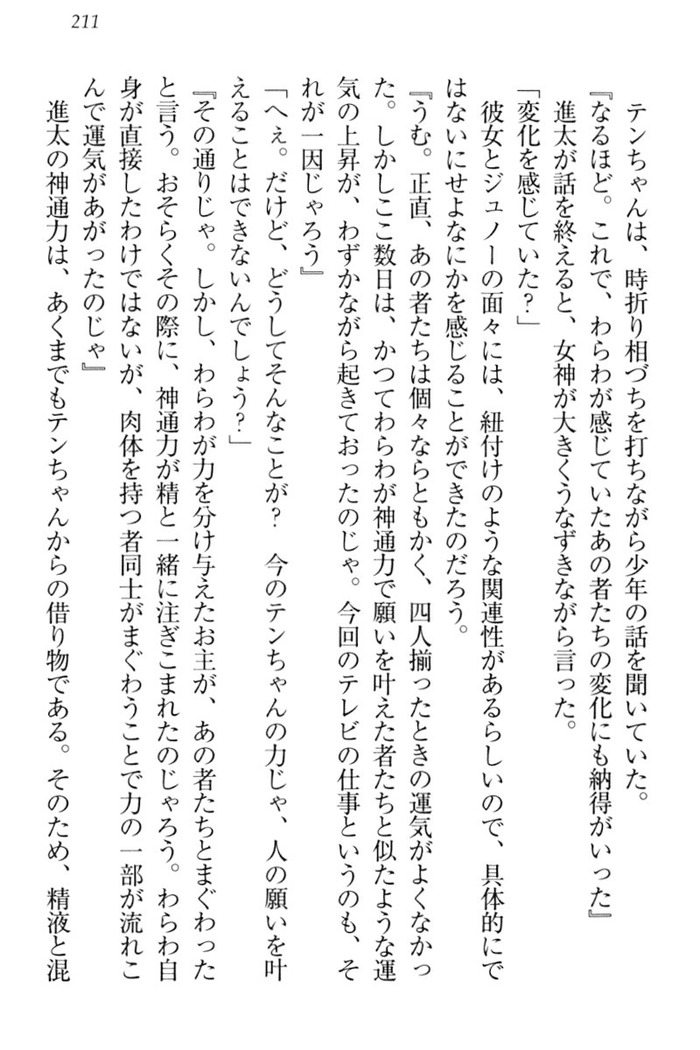 211
テンちゃんは、時折り相づちを打ちながら少年の話を聞いていた。
『なるほど。これで、わらわが感じていたあの者たちの変化にも納得がいった』
進太が話を終えると、女神が大きくうなずきながら言った。
「変化を感じていた?」
彼女とジュノーの面々には、紐付けのような関連性があるらしいので、具体的にで
はないにせよなにかを感じることができたのだろう。
『うむ。正直、あの者たちは個々ならともかく、四人揃ったときの運気がよくなかっ
た。しかしここ数日は、かつてわらわが神通力で願いを叶えた者たちと似たような運
気の上昇が、わずかながら起きておったのじゃ。今回のテレビの仕事というのも、そ
れが一因じゃろう』
「へぇ。だけど、どうしてそんなことが? 今のテンちゃんの力じゃ、人の願いを叶
えることはできないんでしょう?」
『その通りじゃ。しかし、わらわが力を分け与えたお主が、あの者たちとまぐわった
と言う。おそらくその際に、神通力が精と一緒に注ぎこまれたのじゃろう。わらわ自
身が直接したわけではないが、肉体を持つ者同士がまぐわうことで力の一部が流れこ
んで運気があがったのじゃ』
進太の神通力は、あくまでもテンちゃんからの借り物である。そのため、精液と混